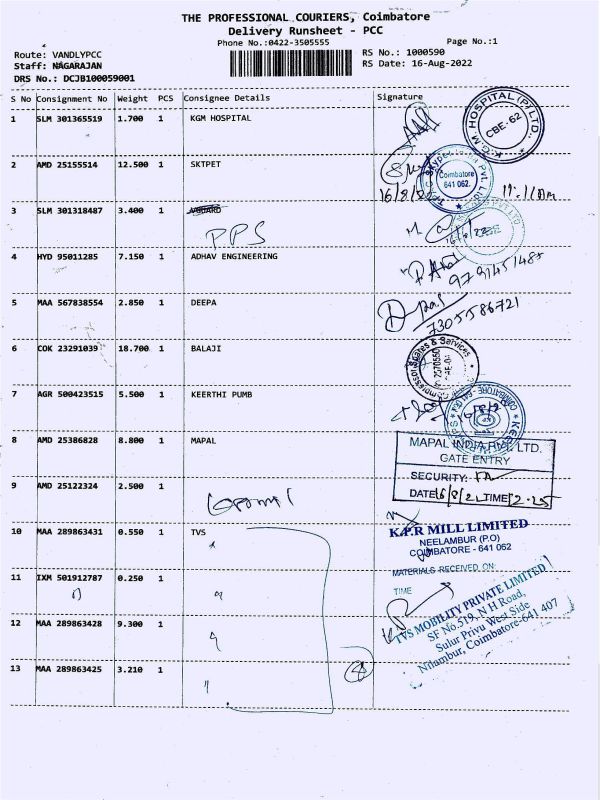 THE PROFESSIONAL COURIERS, Coimbatore
Delivery Runsheet - PCC
Phone No.:0422-3505555
Page No.:1
Route: VANDLYPCC
RS No.: 1000590
Staff: NAGARAJAN
RS Date: 16-Aug-2022
DRS No.: DCJB100059001
S No Consignment No Weight PCS Consignee Details Signature
1 SLM 301365519 1.700 1 KGM HOSPITAL
K.G.M HOSPITAL (P) LTD.,
CBE-62
2 AMD 25155514 12.500 1 SKTPET
Coimbatore
641 062.
16/8/22
3 SLM 301318487 3.400 1
PPS
16/8/22
4 HYD 95011285 7.150 1 ADHAV ENGINEERING
5 MAA 567838554 2.850 1 DEEPA
7305586721
6 COK 23291039 18.700 1 BALAJI
Compressor Spares & Services
7 AGR 500423515 5.500 1 KEERTHI PUMB
8 AMD 25386828 8.800 1 MAPAL
MAPAL INDIA PVT. LTD.
GATE ENTRY
SECURITY:
DATE 16/8/2 TIME 2.25
9 AMD 25122324 2.500 1
10 MAA 289863431 0.550 1 TVS
K.P.R MILL LIMITED
NEELAMBUR (P.O)
COIMBATORE - 641 062
MATERIALS RECEIVED ON
TIME
11 IXM 501912787 0.250 1
12 MAA 289863428 9.300 1
TVS MOBILITY PRIVATE LIMITED
SF No.519, N H Road,
Sulur Privu West Side
Nilambur, Coimbatore-641 407
13 MAA 289863425 3.210 1
8